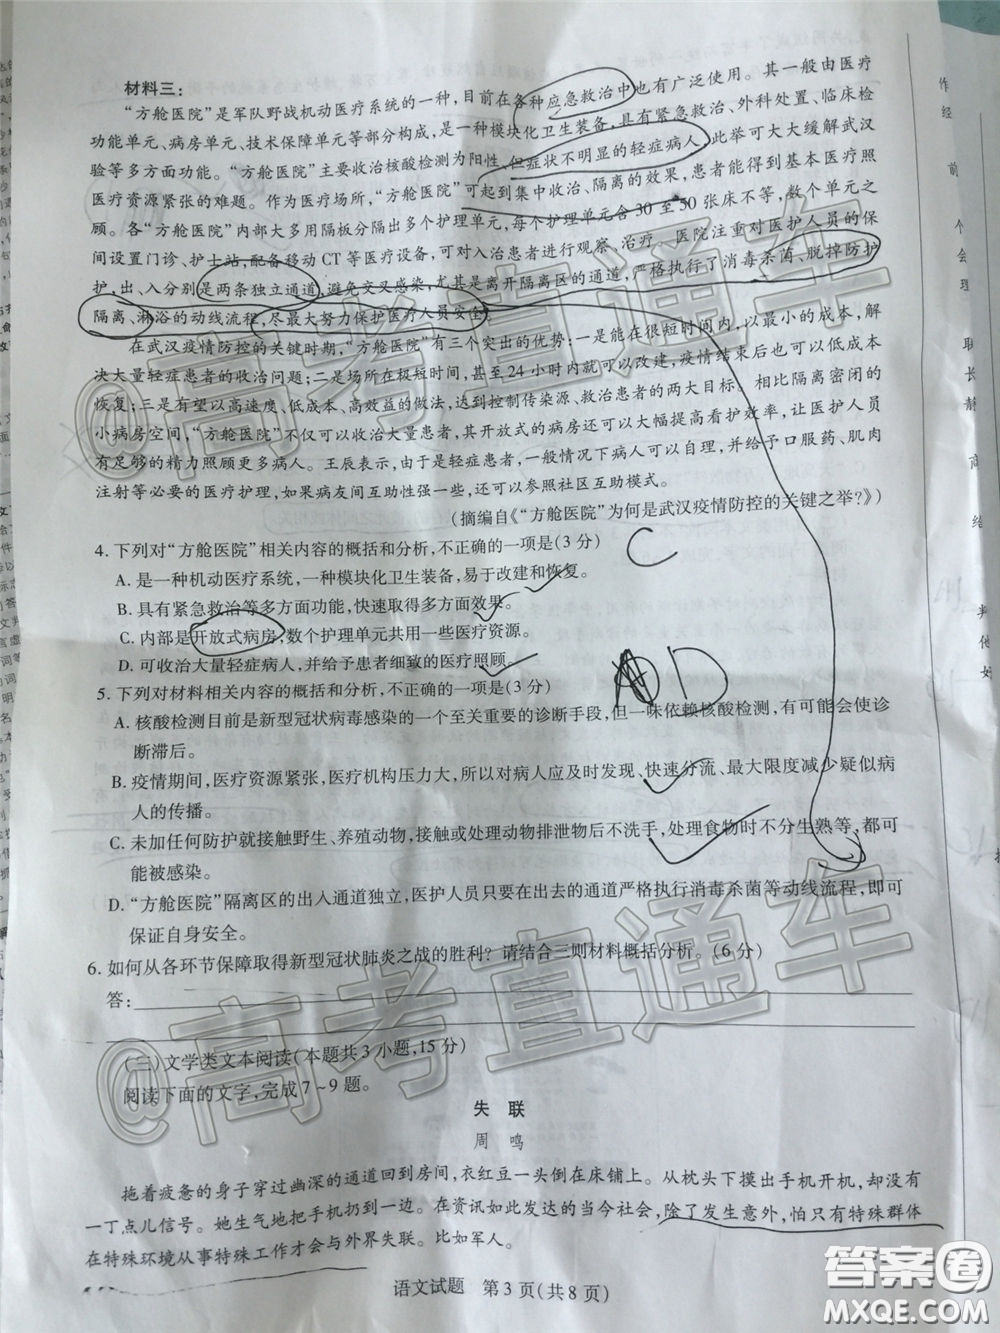 材料三：
“方舱医院”是军队野战机动医疗系统的一种，目前在各种应急救治中也有广泛使用。其一般由医疗
功能单元、病房单元、技术保障单元等部分构成，是一种模块化卫生装备，具有紧急救治、外科处置、临床检
验等多方面功能。“方舱医院”主要收治核酸检测为阳性、但症状不明显的轻症病人，此举可大大缓解武汉
医疗资源紧张的难题。作为医疗场所，“方舱医院”可起到集中收治、隔离的效果，患者能得到基本医疗照
顾。各“方舱医院”内部大多用隔板分隔出多个护理单元，每个护理单元含30至50张床不等，数个单元之
间设置门诊、护士站，配备移动CT等医疗设备，可对入治患者进行观察、治疗。医院注重对医护人员的保
护，出、入分别是两条独立通道，避免交叉感染，尤其是离开隔离区的通道，严格执行了消毒杀菌、脱掉防护
隔离、淋浴的动线流程，尽最大努力保护医疗人员安全。
在武汉疫情防控的关键时期，“方舱医院”有三个突出的优势：一是能在很短时间内，以最小的成本，解
决大量轻症患者的收治问题；二是场所在极短时间，甚至24小时内就可以改建，疫情结束后也可以低成本
恢复；三是有望以高速度、低成本、高效益的做法，达到控制传染源、救治患者的两大目标。相比隔离密闭的
小病房空间，“方舱医院”不仅可以收治大量患者，其开放式的病房还可以大幅提高看护效率，让医护人员
有足够的精力照顾更多病人。王辰表示，由于是轻症患者，一般情况下病人可以自理，并给予口服药、肌肉
注射等必要的医疗护理，如果病友间互助性强一些，还可以参照社区互助模式。
（摘编自《“方舱医院”为何是武汉疫情防控的关键之举？》）
4. 下列对“方舱医院”相关内容的概括和分析，不正确的一项是(3分) C
A. 是一种机动医疗系统，一种模块化卫生装备，易于改建和恢复。
B. 具有紧急救治等多方面功能，快速取得多方面效果。
C. 内部是开放式病房，数个护理单元共用一些医疗资源。
D. 可收治大量轻症病人，并给予患者细致的医疗照顾。
5. 下列对材料相关内容的概括和分析，不正确的一项是(3分) D
A. 核酸检测目前是新型冠状病毒感染的一个至关重要的诊断手段，但一味依赖核酸检测，有可能会使诊
断滞后。
B. 疫情期间，医疗资源紧张，医疗机构压力大，所以对病人应及时发现、快速分流、最大限度减少疑似病
人的传播。
C. 未加任何防护就接触野生、养殖动物，接触或处理动物排泄物后不洗手，处理食物时不分生熟等，都可
能被感染。
D. “方舱医院”隔离区的出入通道独立，医护人员只要在出去的通道严格执行消毒杀菌等动线流程，即可
保证自身安全。
6. 如何从各环节保障取得新型冠状肺炎之战的胜利？请结合三则材料概括分析。(6分)
答：
(二)文学类文本阅读(本题共3小题，15分)
阅读下面的文字，完成7~9题。
失 联
周 鸣
拖着疲惫的身子穿过幽深的通道回到房间，衣红豆一头倒在床铺上。从枕头下摸出手机开机，却没有
一丁点儿信号。她生气地把手机扔到一旁。在资讯如此发达的当今社会，除了发生意外，怕只有特殊群体
在特殊环境从事特殊工作才会与外界失联。比如军人。
语文试题 第3页(共8页)
@高考直通车
@高考直通车
答案圈
MXQE.COM